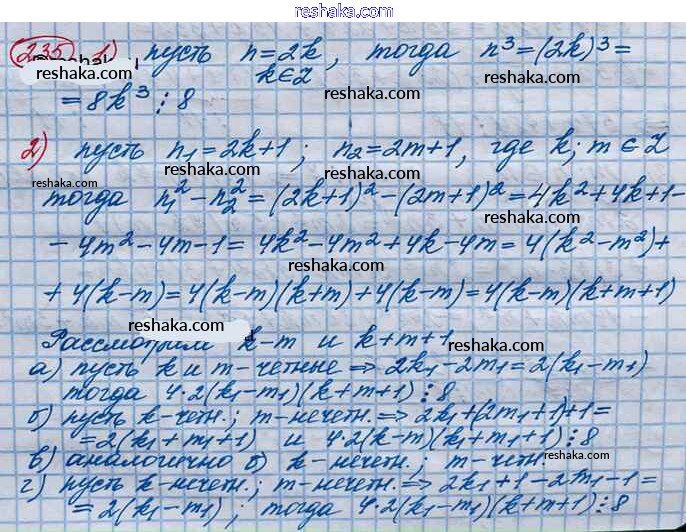 reshaka.com
235 1) пусть n=2k, тогда n³=(2k)³=
k∈Z
reshaka.com
reshaka.com
=8k³ ⋮ 8
2) пусть n₁=2k+1; n₂=2m+1, где k; m ∈ Z
reshaka.com
reshaka.com
reshaka.com
тогда n₁²-n₂²=(2k+1)²-(2m+1)²=4k²+4k+1-
reshaka.com
-4m²-4m-1=4k²-4m²+4k-4m=4(k²-m²)+
reshaka.com
+4(k-m)=4(k-m)(k+m)+4(k-m)=4(k-m)(k+m+1)
reshaka.com
Рассмотрим k-m и k+m+1
reshaka.com
а) пусть k и m-четные ⇒ 2k₁-2m₁=2(k₁-m₁)
тогда 4·2(k₁-m₁)(k+m+1) ⋮ 8
б) пусть k-четн.; m-нечетн. ⇒ 2k₁+(2m₁+1)+1=
=2(k₁+m₁+1) и 4·2(k-m)(k₁+m₁+1) ⋮ 8
в) аналогично б) k-нечетн.; m-четн.
г) пусть k-нечетн.; m-нечетн. ⇒ 2k₁+1-2m₁-1=
=2(k₁-m₁); тогда 4·2(k₁-m₁)(k+m+1) ⋮ 8
reshaka.com